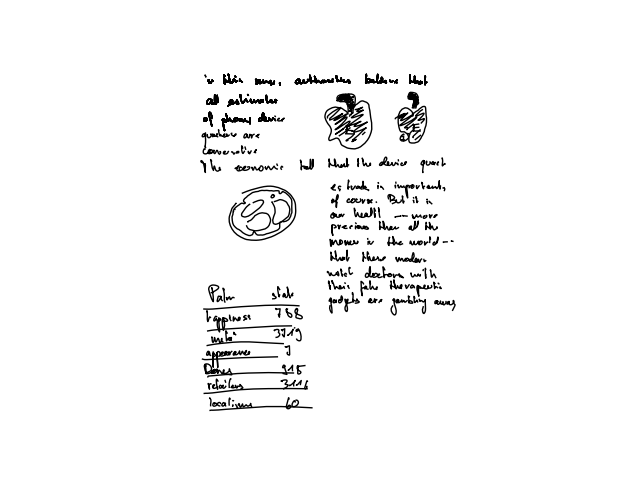 in this area, authorities believe that
all estimates
of phony device
quackery are
conservative
The economic toll that the device quack
es trade is important,
of course. But it is
our health -- more
precious than all the
money in the world --
that these modern
witch doctors with
their fake therapeutic
gadgets are gambling away
Palm state
happiness 768
metal
appearance
Danes 915
retailers 3116
locations 60